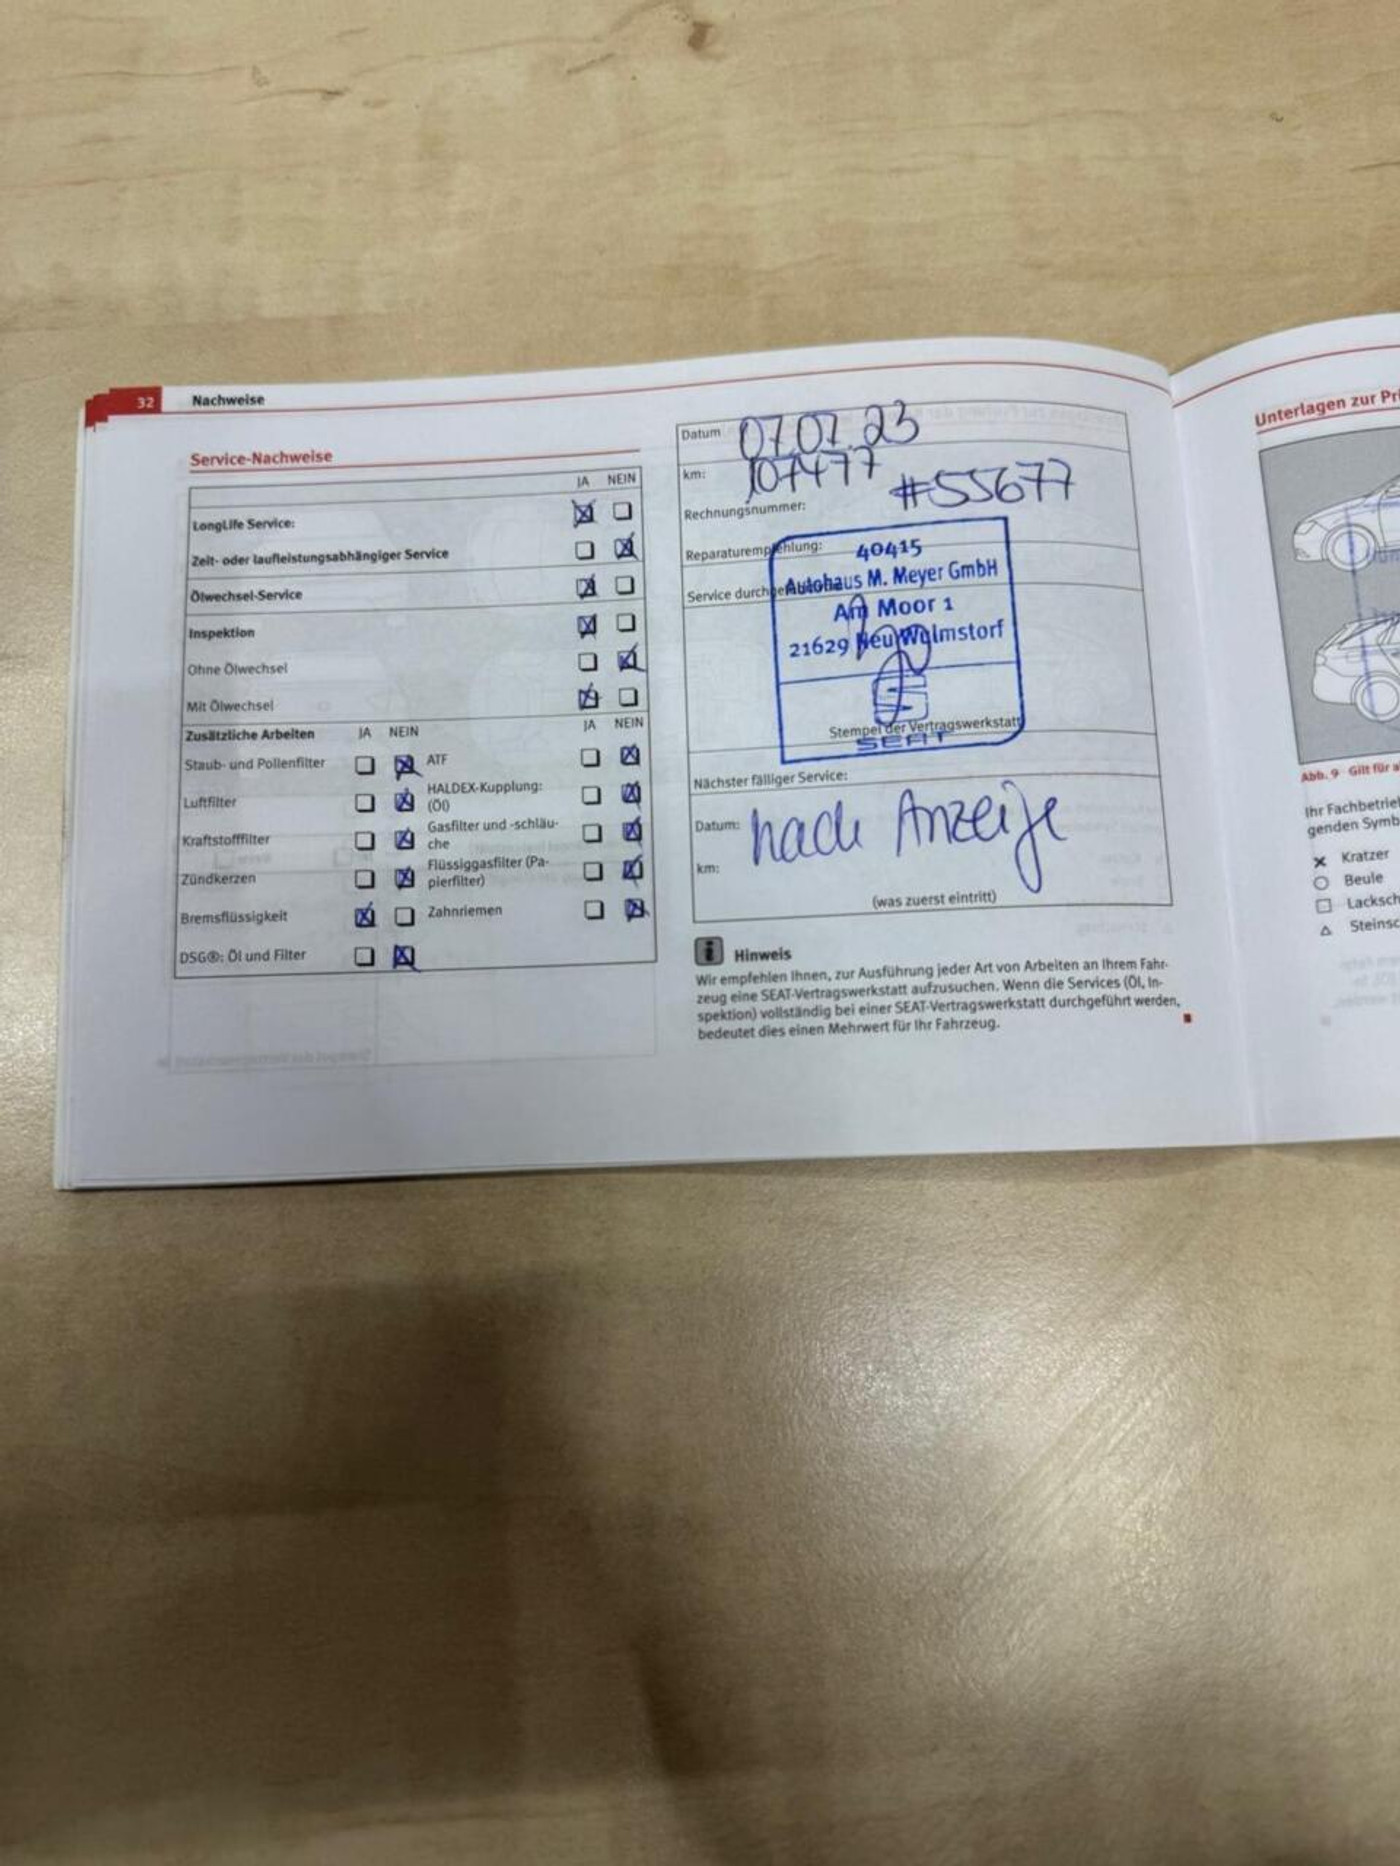 32 Nachweise
Service-Nachweise
JA NEIN
LongLife Service:
Zeit- oder laufleistungsabhängiger Service
Ölwechsel-Service
Inspektion
Ohne Ölwechsel
Mit Ölwechsel
Zusätzliche Arbeiten JA NEIN JA NEIN
Staub- und Pollenfilter ATF
Luftfilter HALDEX-Kupplung:
(Öl)
Kraftstofffilter Gasfilter und -schläu-
che
Zündkerzen Flüssiggasfilter (Pa-
pierfilter)
Bremsflüssigkeit Zahnriemen
DSG®: Öl und Filter
Datum 07.07.23
km: 107477
Rechnungsnummer: #55677
Reparaturempfehlung:
Service durchge
40415
Autohaus M. Meyer GmbH
Am Moor 1
21629 Neu Wulmstorf
Stempel der Vertragswerkstatt
SEAT
Nächster fälliger Service:
Datum: nach Anzeige
km:
(was zuerst eintritt)
Hinweis
Wir empfehlen Ihnen, zur Ausführung jeder Art von Arbeiten an Ihrem Fahr-
zeug eine SEAT-Vertragswerkstatt aufzusuchen. Wenn die Services (Öl, In-
spektion) vollständig bei einer SEAT-Vertragswerkstatt durchgeführt werden,
bedeutet dies einen Mehrwert für Ihr Fahrzeug.
Unterlagen zur Pr
Abb. 9 Gilt für a
Ihr Fachbetrie
genden Symb
Kratzer
Beule
Lacksch
Steinsc